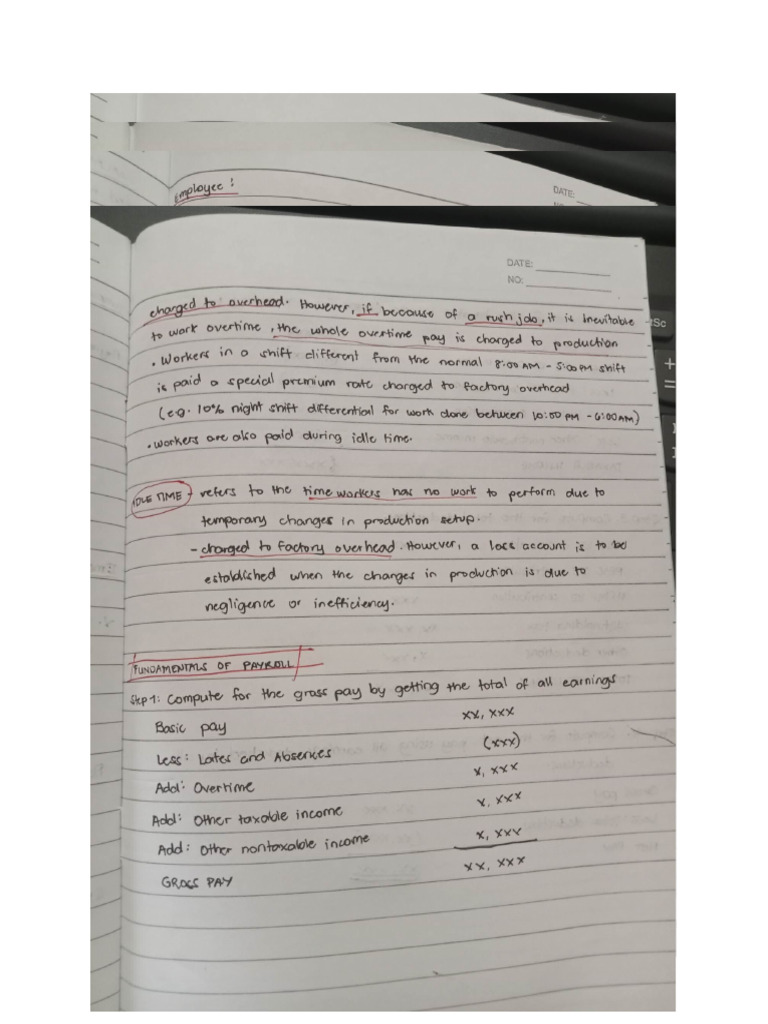 Employee:
DATE:
DATE:
NO:
charged to overhead. However, if because of a rush job, it is inevitable
to work overtime, the whole overtime pay is charged to production
. Workers in a shift different from the normal 8:00 AM - 5:00 PM shift
is paid a special premium rate charged to factory overhead
(e.g. 10% night shift differential for work done between 10:00 PM - 6:00AM)
. workers are also paid during idle time.
IDLE TIME - refers to the time workers has no work to perform due to
temporary changes in production setup.
- charged to factory overhead. However, a loss account is to be
established when the changes in production is due to
negligence or inefficiency.
FUNDAMENTALS OF PAYROLL
Step 1: Compute for the gross pay by getting the total of all earnings
Basic pay xx, xxx
Less: Lates and Absences (xxx)
Add: Overtime x, xxx
Add: Other taxable income x, xxx
Add: Other nontaxable income x, xxx
GROSS PAY xx, xxx